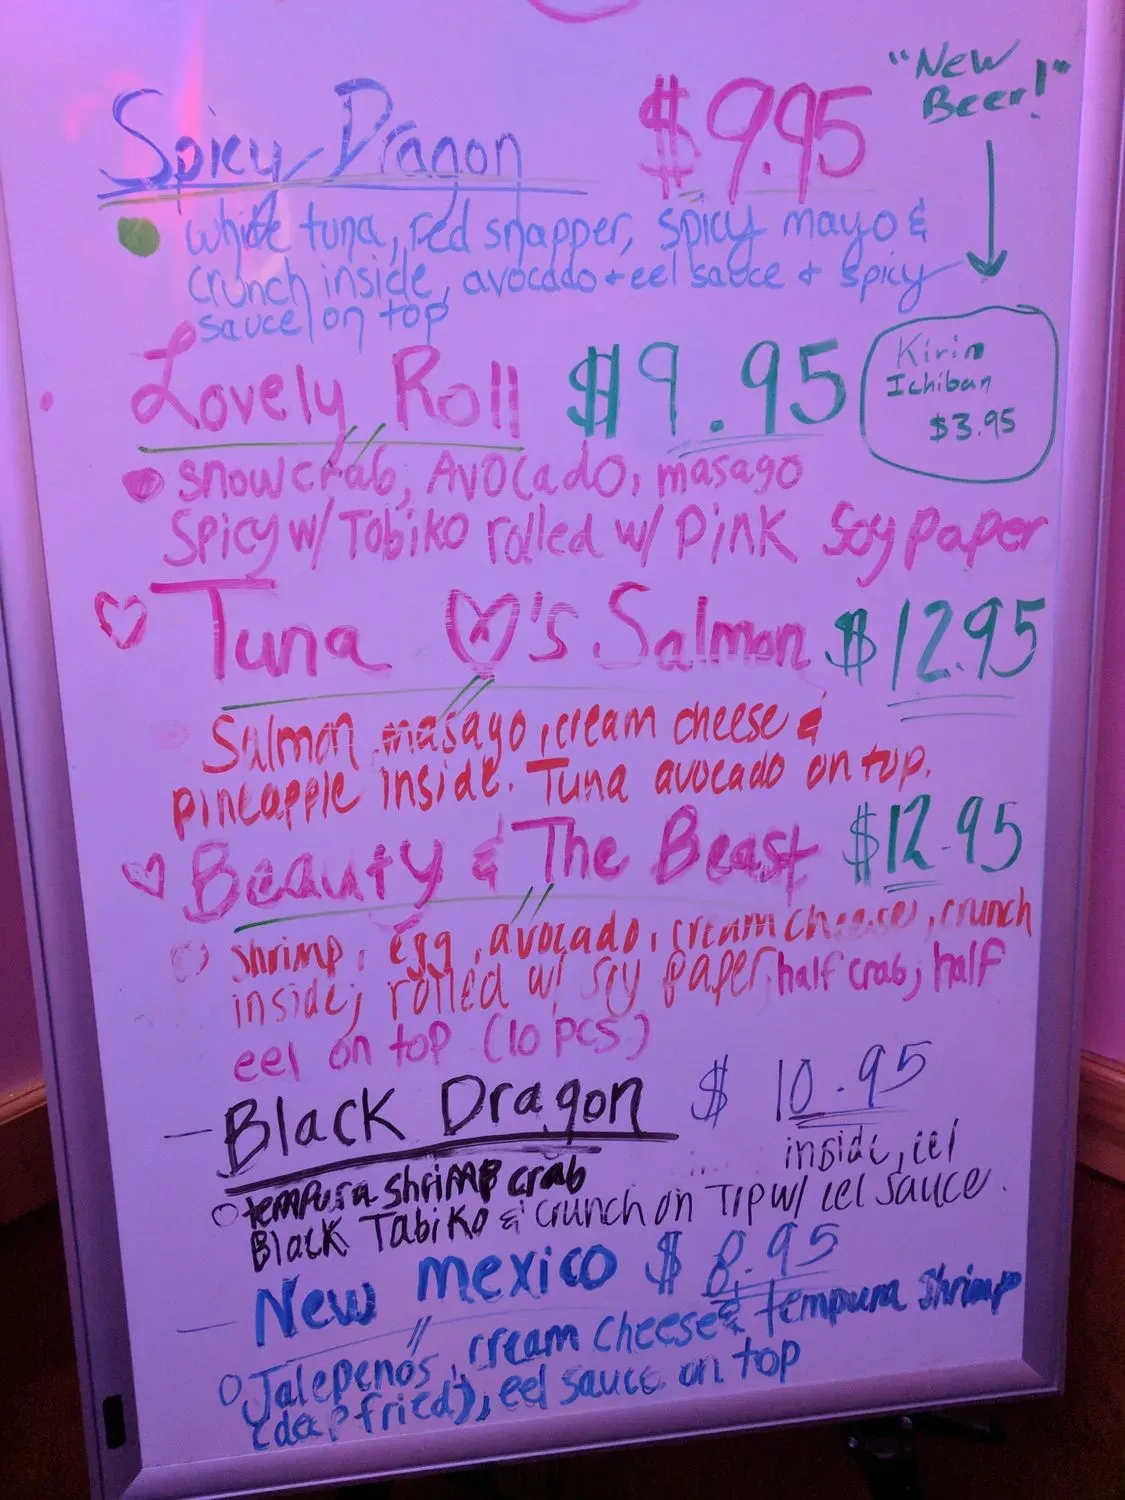 Spicy Dragon $9.95
white tuna, red snapper, spicy mayo &
crunch inside, avocado + eel sauce + spicy
sauce on top
"New
Beer!"
Kirin
Ichiban
$3.95
Lovely Roll $9.95
snowcrab, Avocado, masago
Spicy w/ Tobiko rolled w/ Pink Soy paper
Tuna ♡'s Salmon $12.95
Salmon masago, cream cheese &
pineapple inside. Tuna avocado on top.
Beauty & The Beast $12.95
shrimp, egg, avocado, cream cheese, crunch
inside, rolled w/ soy paper, half crab, half
eel on top (10 pcs)
Black Dragon $10.95
tempura shrimp crab inside, eel
Black Tabiko & crunch on Top w/ eel sauce.
New mexico $8.95
Jalepenos, cream cheese & tempura shrimp
(deep fried), eel sauce on top